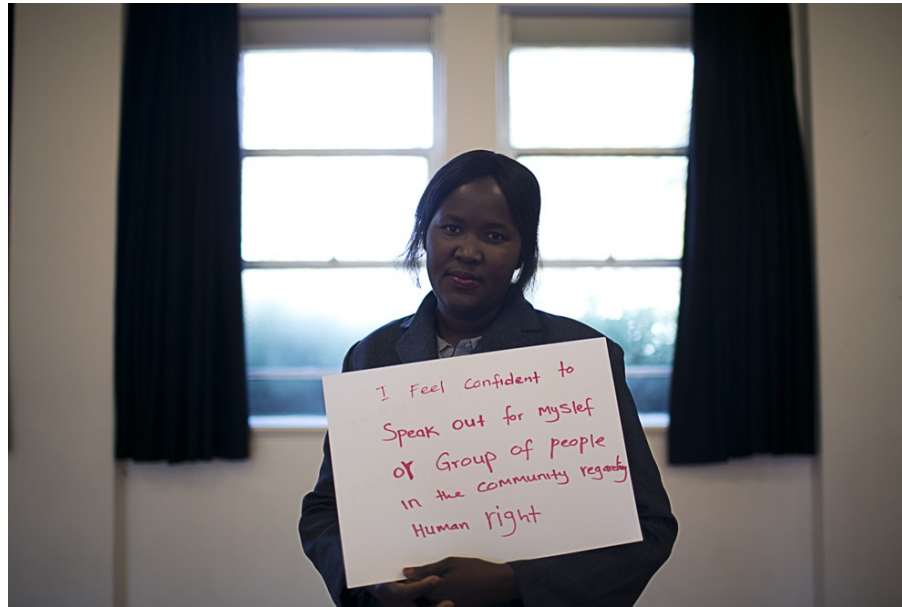 I Feel confident to
Speak out for myslef
or Group of people
in the community regarding
Human right